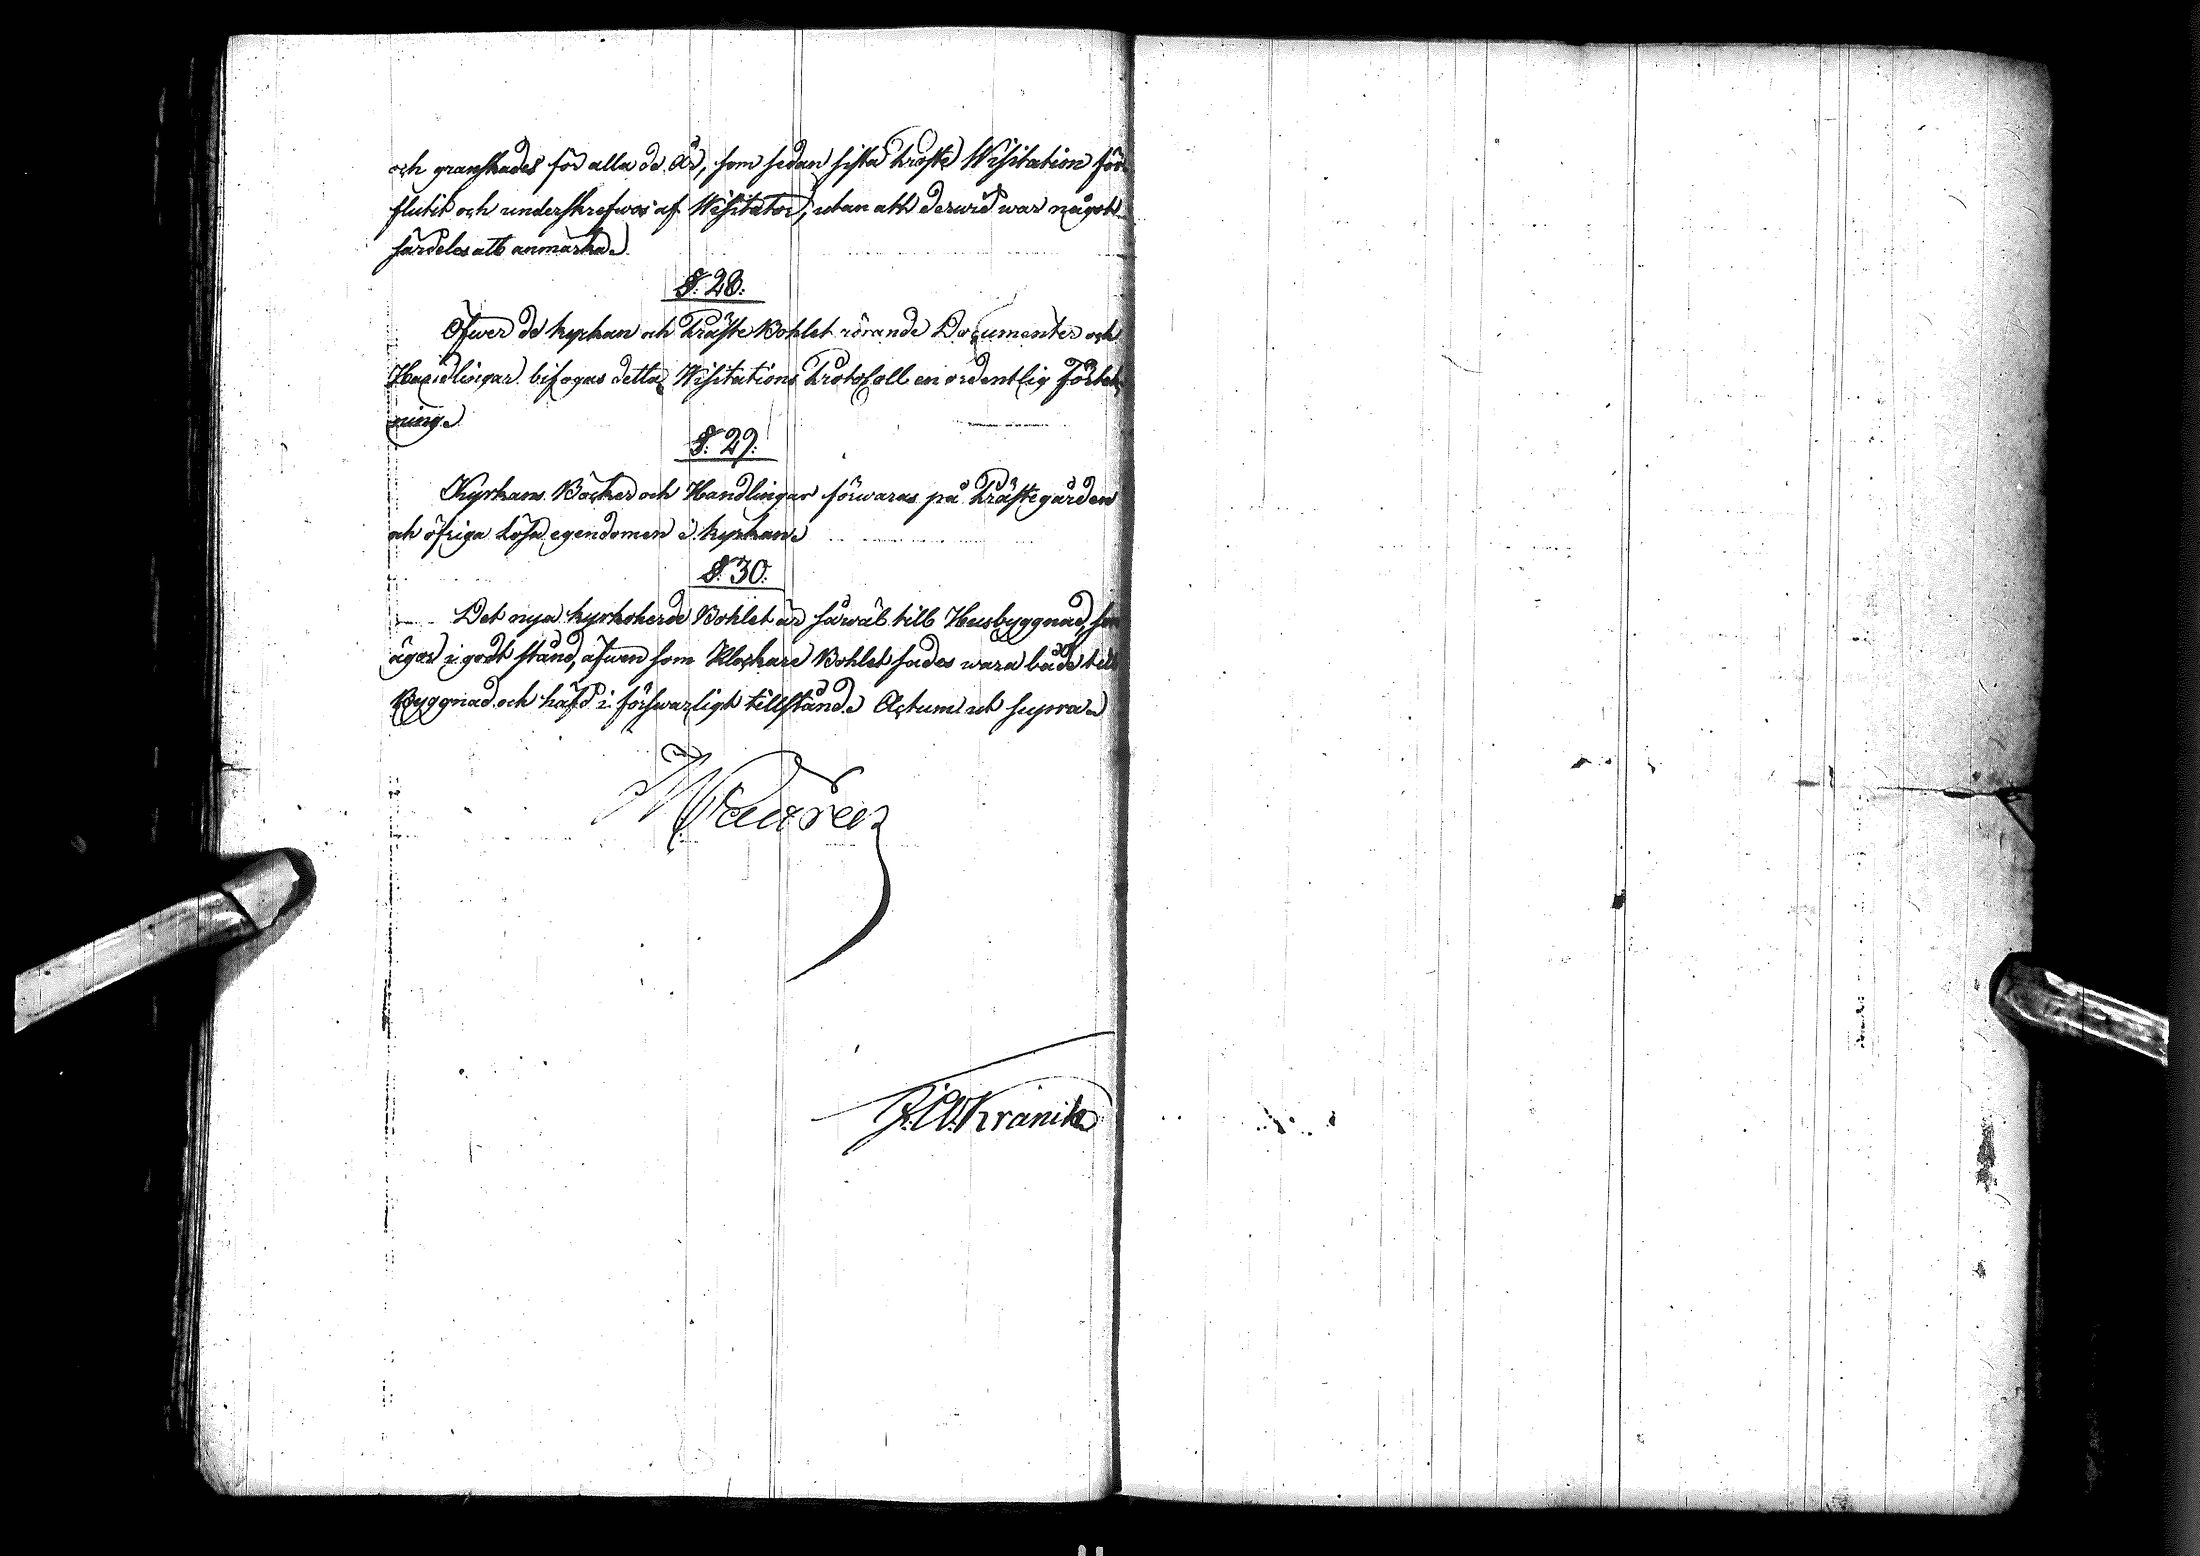 och granskades för alla de År, som sedan sista Proste Wisitation för-
flutit och underskrefwos af Wisitator, utan att derwid war något
särdeles att anmärka.
§. 28.
Öfwer de kyrkan och Präste Bohlet rörande Documenter och
Handlingar bifogas detta Wisitations Protokoll en ordentlig Förtek-
ning.
§. 29.
Kyrkans Böcker och Handlingar förwaras på Prästegården
och öfriga Lösa egendomen i kyrkan.
§. 30.
Det nya kyrkoherde Bohlet är såwäl till Husbyggnad, som
ägor i godt stånd, äfwen som Klockare Bohlet sades wara både till
Byggnad och häfd i förswarligt tillstånd. Actum ut supra.